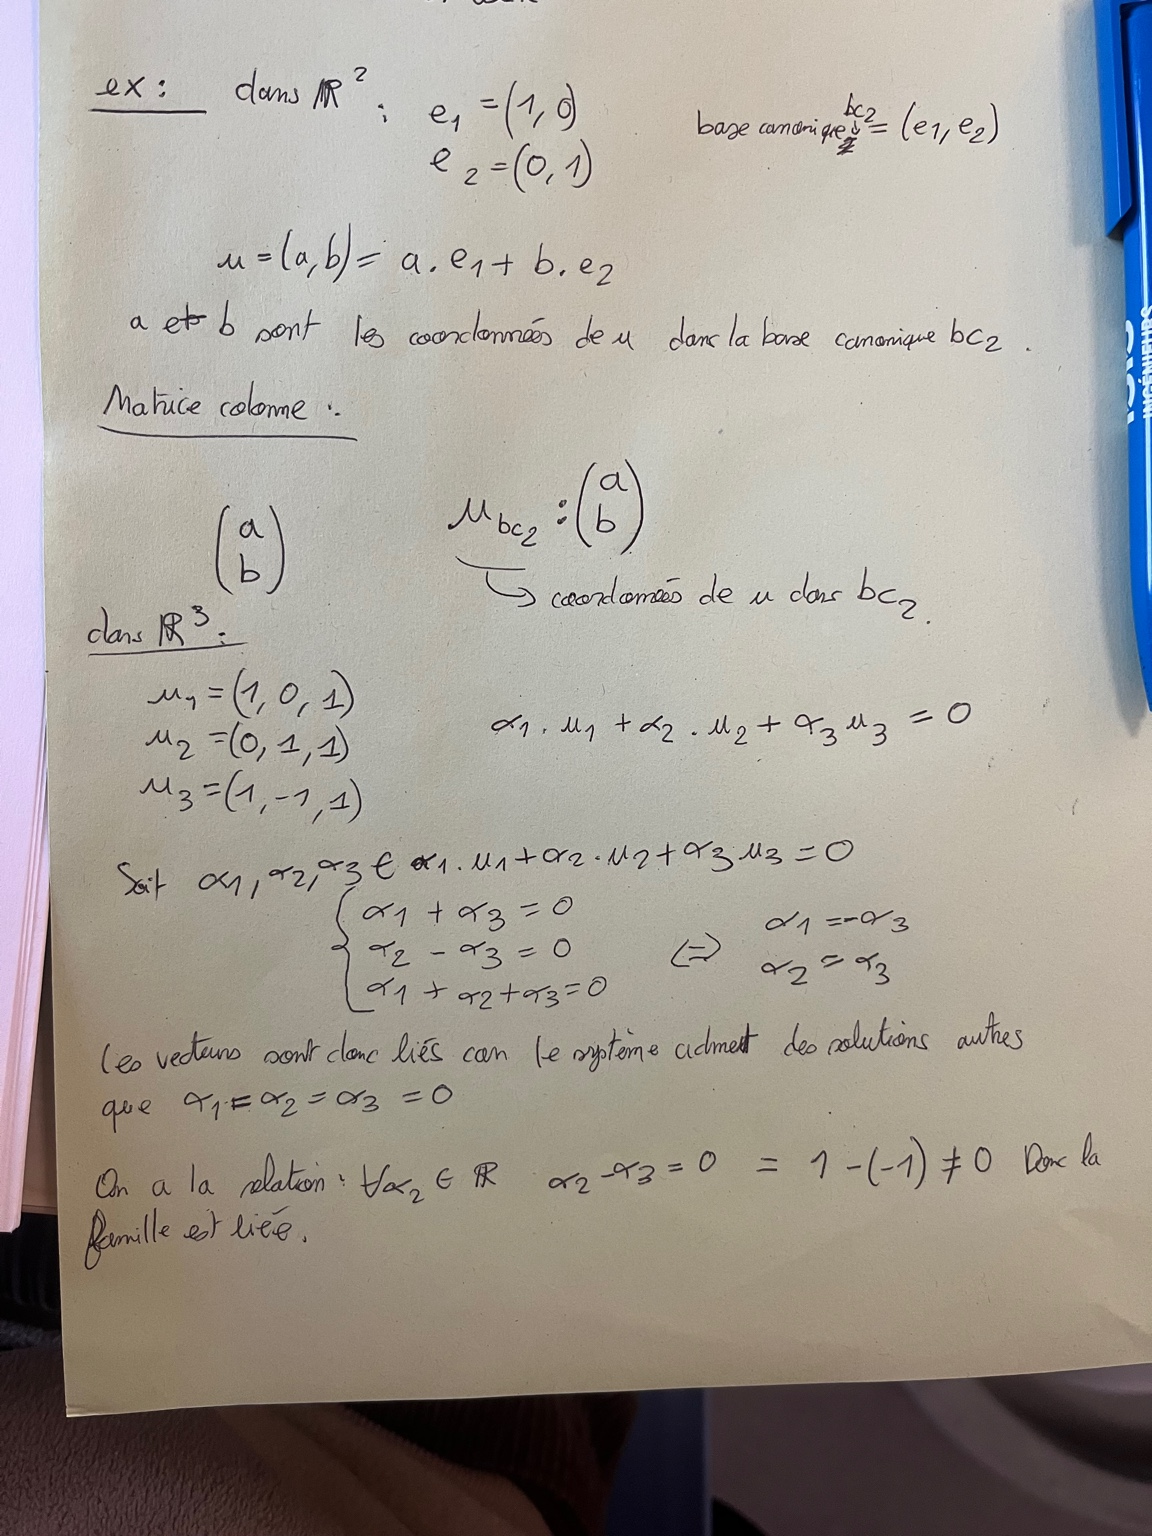 ex : dans ℝ² : e₁ = (1, 0)
base canonique bc₂ = (e₁, e₂)
e₂ = (0, 1)
u = (a, b) = a . e₁ + b . e₂
a et b sont les coordonnées de u dans la base canonique bc₂ .
Matrice colonne :
(a b) u_bc₂ : (a b)
↳ coordonnées de u dans bc₂ .
dans ℝ³ :
u₁ = (1, 0, 1)
u₂ = (0, 1, 1)
α₁ . u₁ + α₂ . u₂ + α₃ u₃ = 0
u₃ = (1, -1, 1)
Soit α₁, α₂, α₃ ∈ α₁ . u₁ + α₂ . u₂ + α₃ u₃ = 0
{ α₁ + α₃ = 0
α₂ - α₃ = 0
α₁ + α₂ + α₃ = 0
⇔ α₁ = -α₃
α₂ = α₃
Les vecteurs sont donc liés car le système admet des solutions autres
que α₁ = α₂ = α₃ = 0
On a la relation : ∀α₂ ∈ ℝ α₂ - α₃ = 0 = 1 - (-1) ≠ 0 Donc la
famille est liée .
INGÉNIEURS